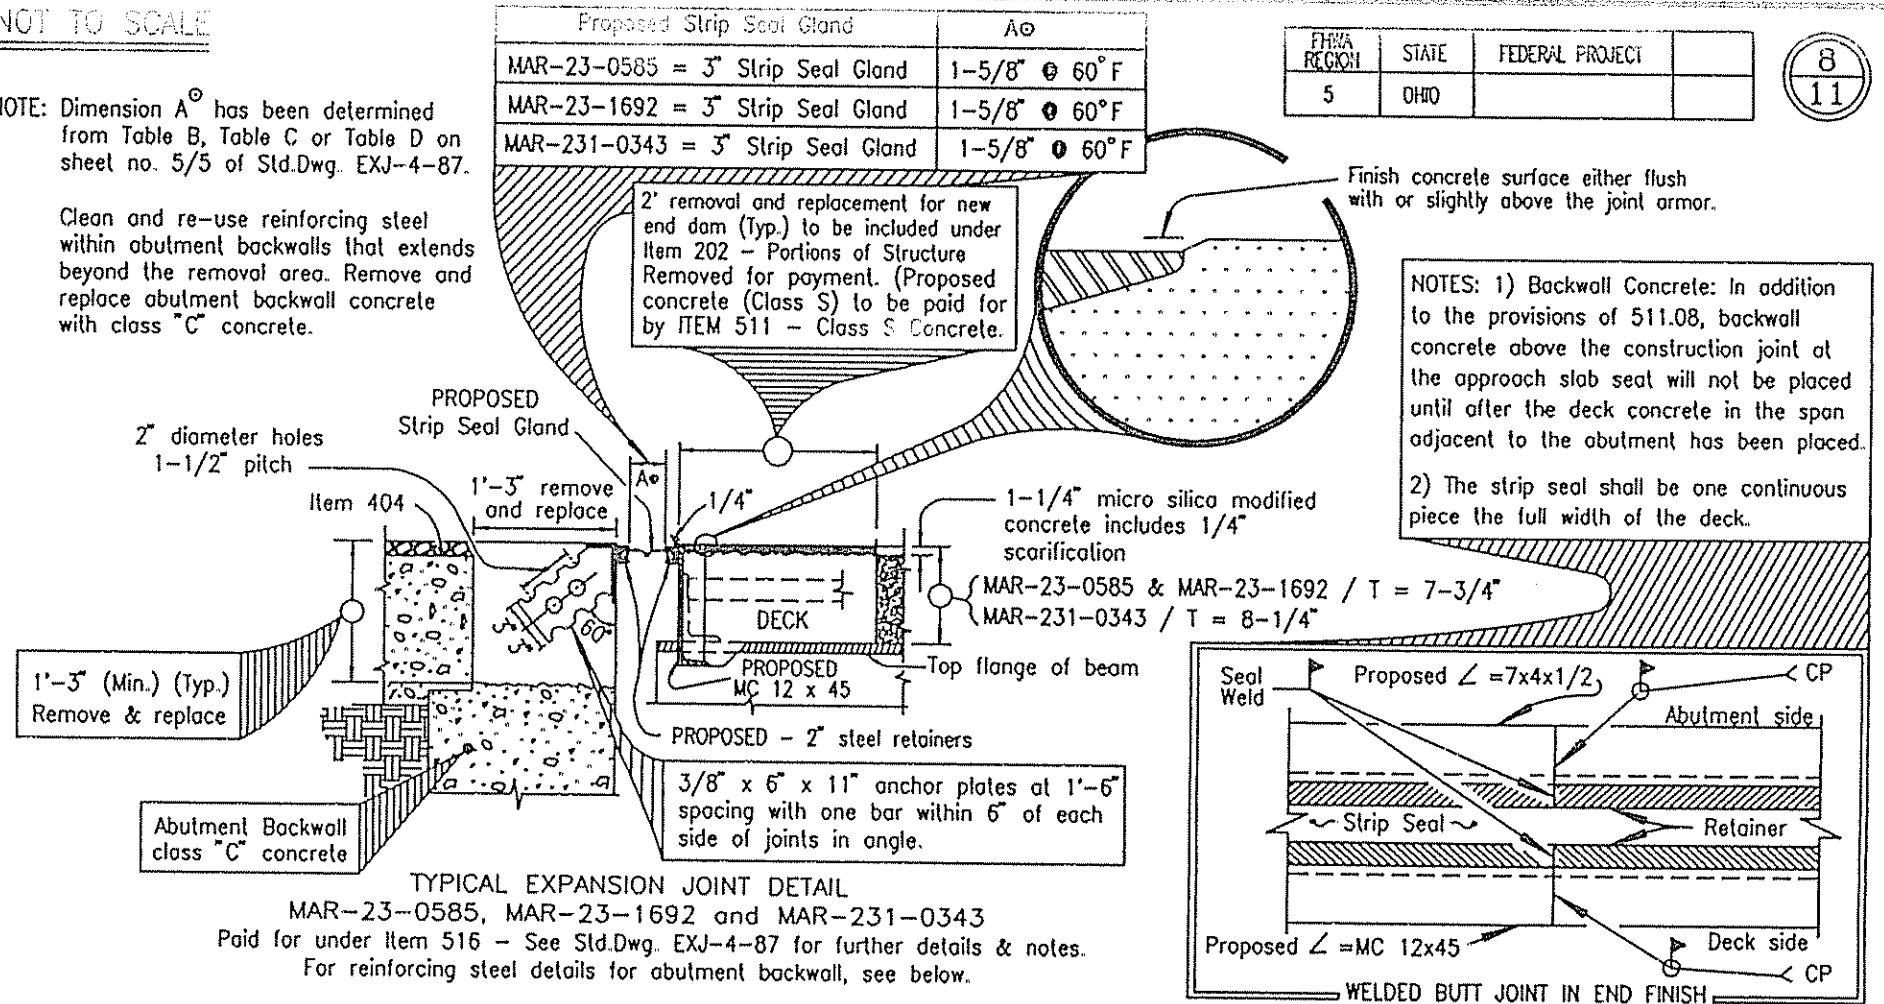 NOT TO SCALE
Proposed Strip Seal Gland A⊙
MAR-23-0585 = 3" Strip Seal Gland 1-5/8" @ 60°F
MAR-23-1692 = 3" Strip Seal Gland 1-5/8" @ 60°F
MAR-231-0343 = 3" Strip Seal Gland 1-5/8" @ 60°F
FHWA REGION STATE FEDERAL PROJECT
5 OHIO
8
11
NOTE: Dimension A⊙ has been determined
from Table B, Table C or Table D on
sheet no. 5/5 of Std.Dwg. EXJ-4-87.
Clean and re-use reinforcing steel
within abutment backwalls that extends
beyond the removal area. Remove and
replace abutment backwall concrete
with class "C" concrete.
2' removal and replacement for new
end dam (Typ.) to be included under
Item 202 - Portions of Structure
Removed for payment. (Proposed
concrete (Class S) to be paid for
by ITEM 511 - Class S Concrete.
Finish concrete surface either flush
with or slightly above the joint armor.
NOTES: 1) Backwall Concrete: In addition
to the provisions of 511.08, backwall
concrete above the construction joint at
the approach slab seat will not be placed
until after the deck concrete in the span
adjacent to the abutment has been placed.
2) The strip seal shall be one continuous
piece the full width of the deck.
PROPOSED
Strip Seal Gland
2" diameter holes
1-1/2" pitch
Item 404
1'-3" remove
and replace
A⊙
1/4"
1-1/4" micro silica modified
concrete includes 1/4"
scarification
MAR-23-0585 & MAR-23-1692 / T = 7-3/4"
MAR-231-0343 / T = 8-1/4"
DECK
60°
3"
3"
Top flange of beam
PROPOSED
MC 12 x 45
1'-3" (Min.) (Typ.)
Remove & replace
PROPOSED - 2" steel retainers
3/8" x 6" x 11" anchor plates at 1'-6"
spacing with one bar within 6" of each
side of joints in angle.
Abutment Backwall
class "C" concrete
TYPICAL EXPANSION JOINT DETAIL
MAR-23-0585, MAR-23-1692 and MAR-231-0343
Paid for under Item 516 - See Std.Dwg. EXJ-4-87 for further details & notes.
For reinforcing steel details for abutment backwall, see below.
Seal
Weld
Proposed ∠ =7x4x1/2
CP
Abutment side
Strip Seal
Retainer
Proposed ∠ =MC 12x45
Deck side
CP
WELDED BUTT JOINT IN END FINISH